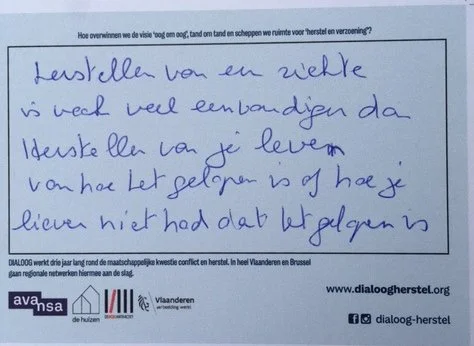 Hoe overwinnen we de visie 'oog om oog', tand om tand en scheppen we ruimte voor 'herstel en verzoening'?
Herstellen van een ziekte
is vaak veel eenvoudiger dan
Herstellen van je leven
van hoe het gelopen is of hoe je
liever niet had dat het gelopen is
DIALOOG werkt drie jaar lang rond de maatschappelijke kwestie conflict en herstel. In heel Vlaanderen en Brussel
gaan regionale netwerken hiermee aan de slag.
www.dialoogherstel.org
avansa
de huizen
Vlaanderen
verbeelding werkt
dialoog-herstel